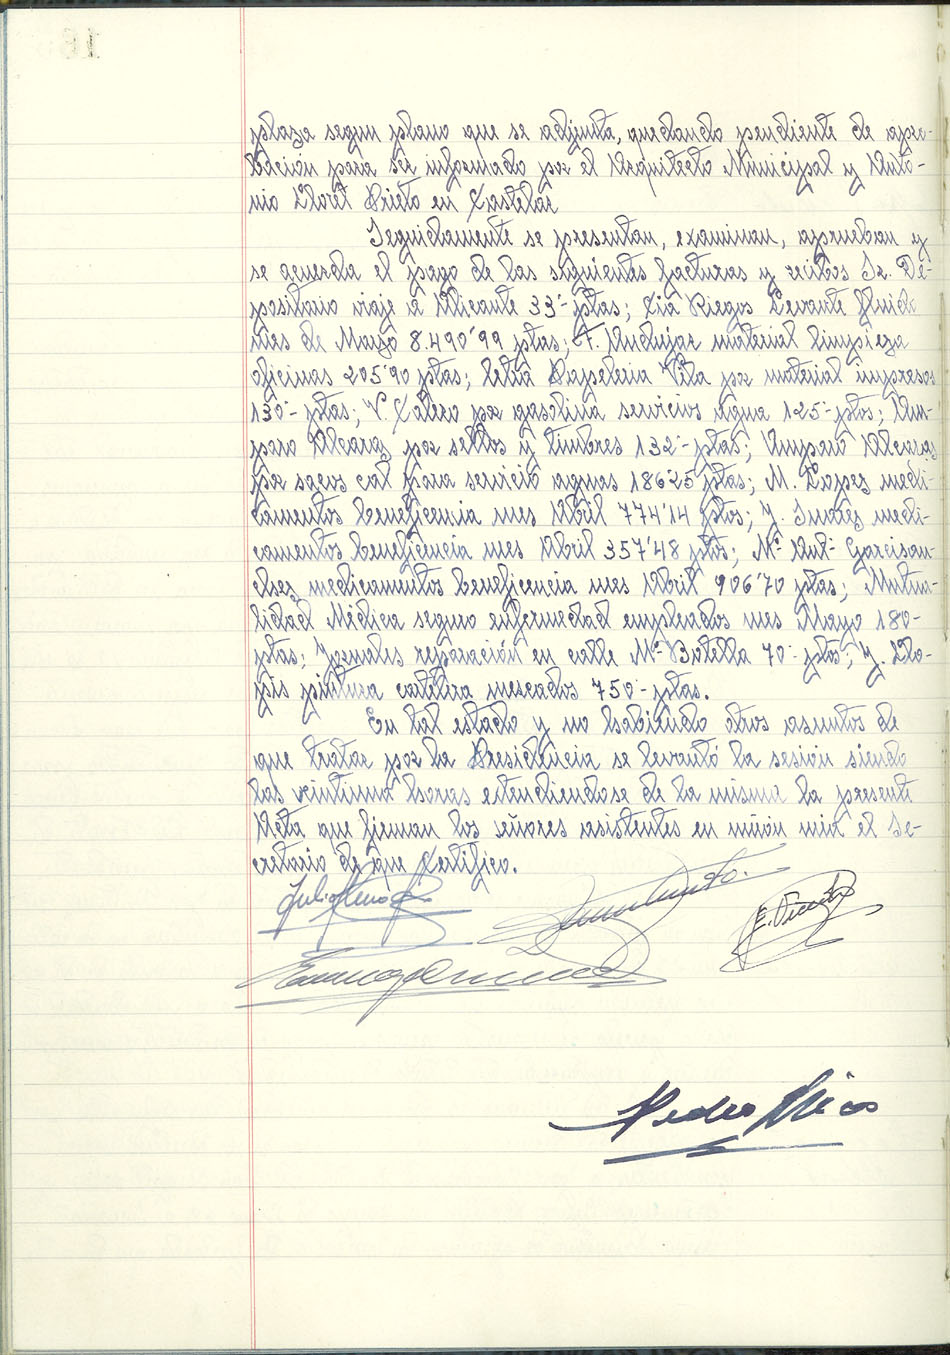 plaza segun plano que se adjunta, quedando pendiente de apro-
bación para ser informado por el Arquitecto Municipal y Anto-
nio Lloret Prieto en Castelar
Seguidamente se presentan, examinan, aprueban y
se acuerda el pago de las siguientes facturas y recibos Sr. De-
positario viaje a Alicante 33'- ptas; Cia Riegos Levante fluido
mes de Marzo 8.490'99 ptas; F. Andujar material limpieza
oficinas 205'90 ptas; letra Papeleria Vila por material impresos
130'- ptas; V. por gasolina servicios agua 125'- ptas; Am-
paro Alcaraz por sellos y timbres 132'- ptas; Amparo Alcaraz
por sacos cal para servicio aguas 186'25 ptas; M. Lopez medi-
camentos beneficencia mes Abril 774'14 ptas; J. Suarez medi-
camentos beneficencia mes Abril 357'48 ptas; Mª Antª Garcisan-
chez medicamentos beneficencia mes Abril 906'70 ptas; Mutua-
lidad Médica seguro enfermedad empleados mes Mayo 180-
ptas; Jornales reparación en calle Mª Botella 70'- ptas; J. Llo-
pis pintura cartelera mercados 750'- ptas.
En tal estado y no habiendo otros asuntos de
que tratar por la Presidencia se levantó la sesión siendo
las veintiuna horas extendiendose de la misma la presente
Acta que firman los señores asistentes en unión mia el Se-
cretario de que Certifico.
E. Vicente
Pedro Mico